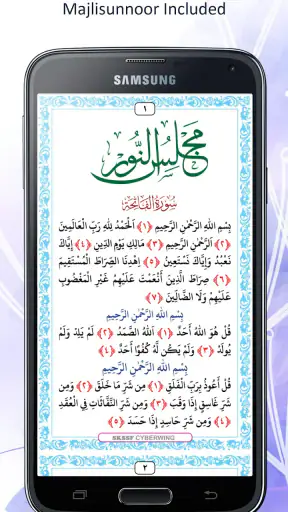 Majlisunnoor Included
SAMSUNG
١
مجلس النور
سُوْرَةُ الْفَاتِحَة
بِسْمِ اللهِ الرَّحْمٰنِ الرَّحِيْمِ ﴿١﴾ اَلْحَمْدُ لِلّٰهِ رَبِّ الْعَالَمِيْنَ
﴿٢﴾ اَلرَّحْمٰنِ الرَّحِيْمِ ﴿٣﴾ مَالِكِ يَوْمِ الدِّيْنِ ﴿٤﴾ إِيَّاكَ
نَعْبُدُ وَإِيَّاكَ نَسْتَعِيْنُ ﴿٥﴾ اِهْدِنَا الصِّرَاطَ الْمُسْتَقِيْمَ
﴿٦﴾ صِرَاطَ الَّذِيْنَ أَنْعَمْتَ عَلَيْهِمْ غَيْرِ الْمَغْضُوْبِ
عَلَيْهِمْ وَلَا الضَّالِّيْنَ ﴿٧﴾
بِسْمِ اللهِ الرَّحْمٰنِ الرَّحِيْمِ
قُلْ هُوَ اللهُ أَحَدٌ ﴿١﴾ اَللهُ الصَّمَدُ ﴿٢﴾ لَمْ يَلِدْ وَلَمْ
يُوْلَدْ ﴿٣﴾ وَلَمْ يَكُنْ لَّهُ كُفُوًا أَحَدٌ ﴿٤﴾
بِسْمِ اللهِ الرَّحْمٰنِ الرَّحِيْمِ
قُلْ أَعُوْذُ بِرَبِّ الْفَلَقِ ﴿١﴾ مِنْ شَرِّ مَا خَلَقَ ﴿٢﴾ وَمِنْ
شَرِّ غَاسِقٍ إِذَا وَقَبَ ﴿٣﴾ وَمِنْ شَرِّ النَّفَّاثَاتِ فِي الْعُقَدِ
﴿٤﴾ وَمِنْ شَرِّ حَاسِدٍ إِذَا حَسَدَ ﴿٥﴾
SKSSF CYBERWING
٢